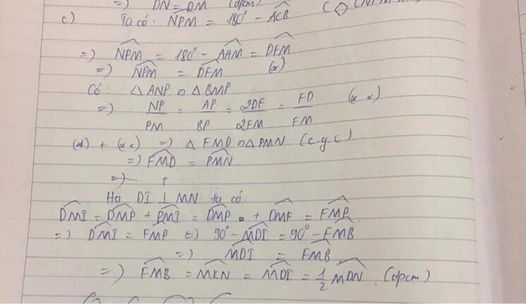 =) DN = DM (đpcm)
c) Ta có: NPM = 180° - ACB
=) NPM = 180° - AAM = DFM
=) NPM = DFM (*)
Có: △ANP ∽ △BMP
=) NP/PM = AP/BP = 2DF/2FM = FD/FM (**)
(*) + (**) =) △FMD ∽ △PMN (c.g.c)
=) FMD = PMN.
=)
Hạ DI ⊥ MN ta có
DMI = DMP + PMI = DMP + DMF = FMP
=) DMI = FMP =) 90° - MDI = 90° - FMB
=) MDI = FMB
=) FMB = MKN = MDI = 1/2 MDN. (đpcm)